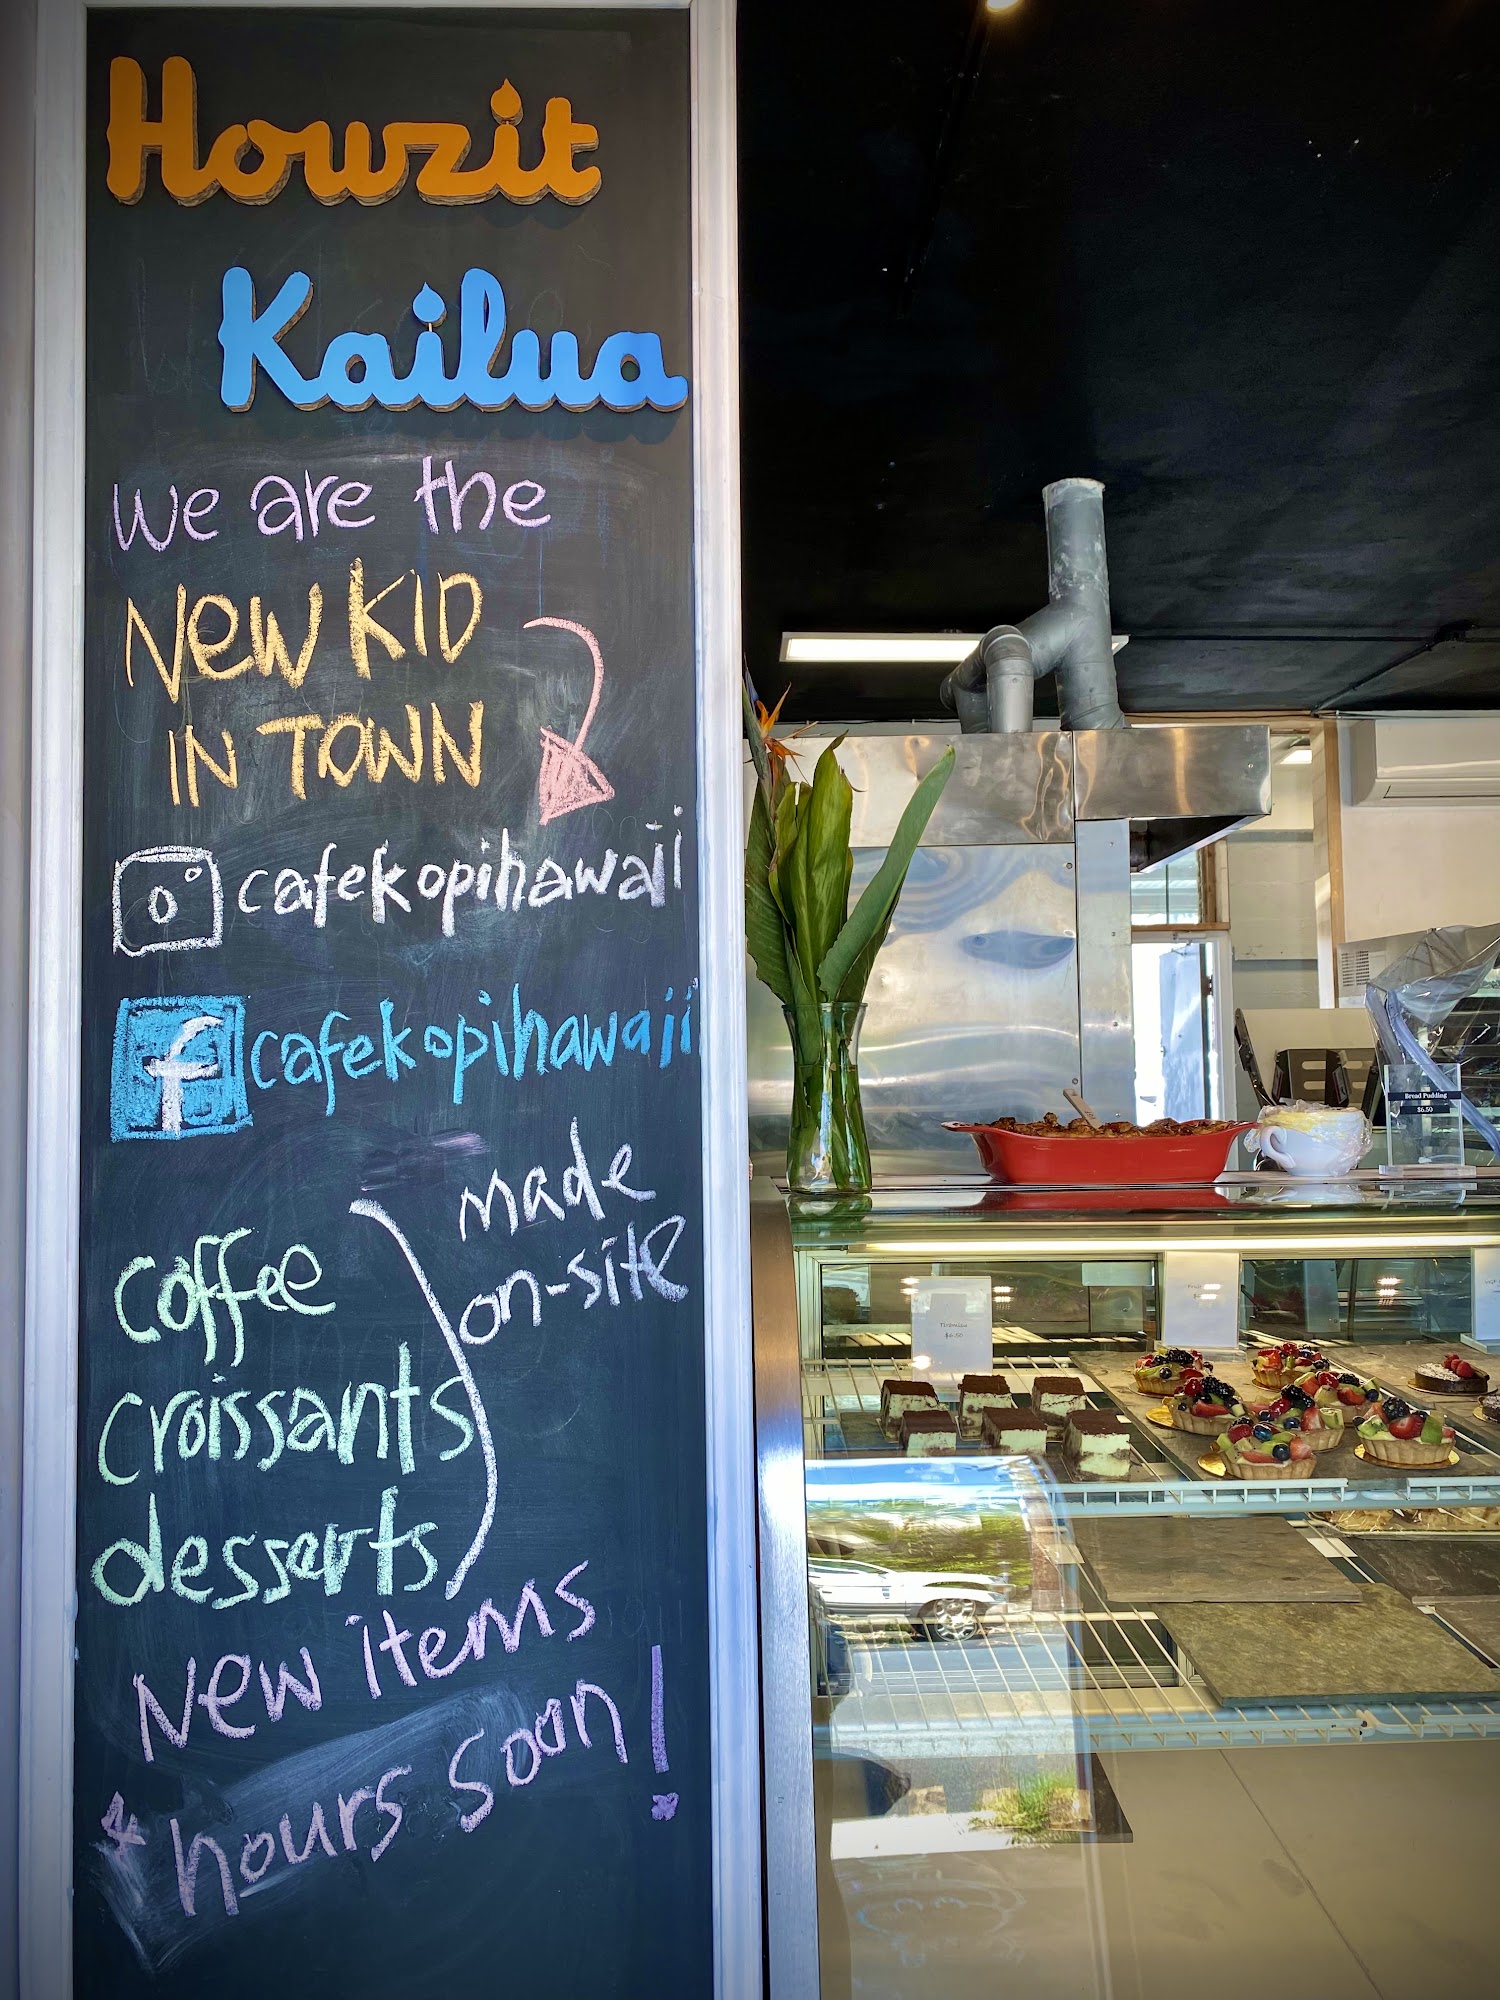 Howzit
Kailua
we are the
NEW KID
IN TOWN
cafekopihawaii
f cafekopihawaii
made
on-site
coffee
croissants
desserts
New items
& hours soon!
Bread Pudding
$6.50
Tiramisu
$6.50